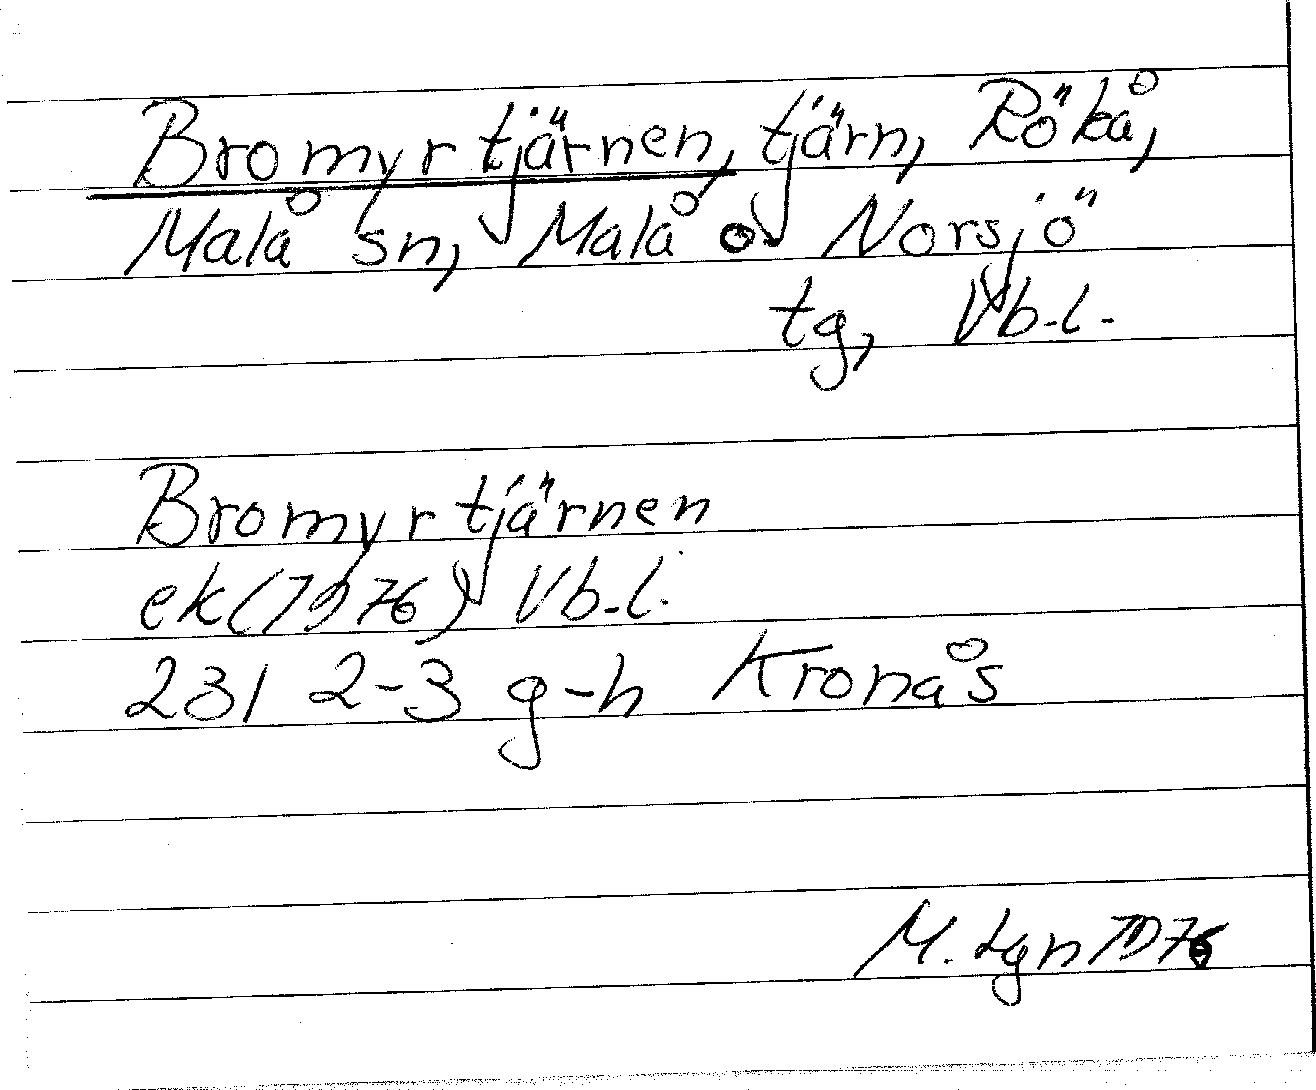 Bromyrtjärnen, tjärn, Rökå,
Malå sn, Malå o Norsjö
tg, Vb.l.
Bromyrtjärnen
ek(1976) Vb.l.
231 2-3 g-h Kronås
M. Lgn 1976